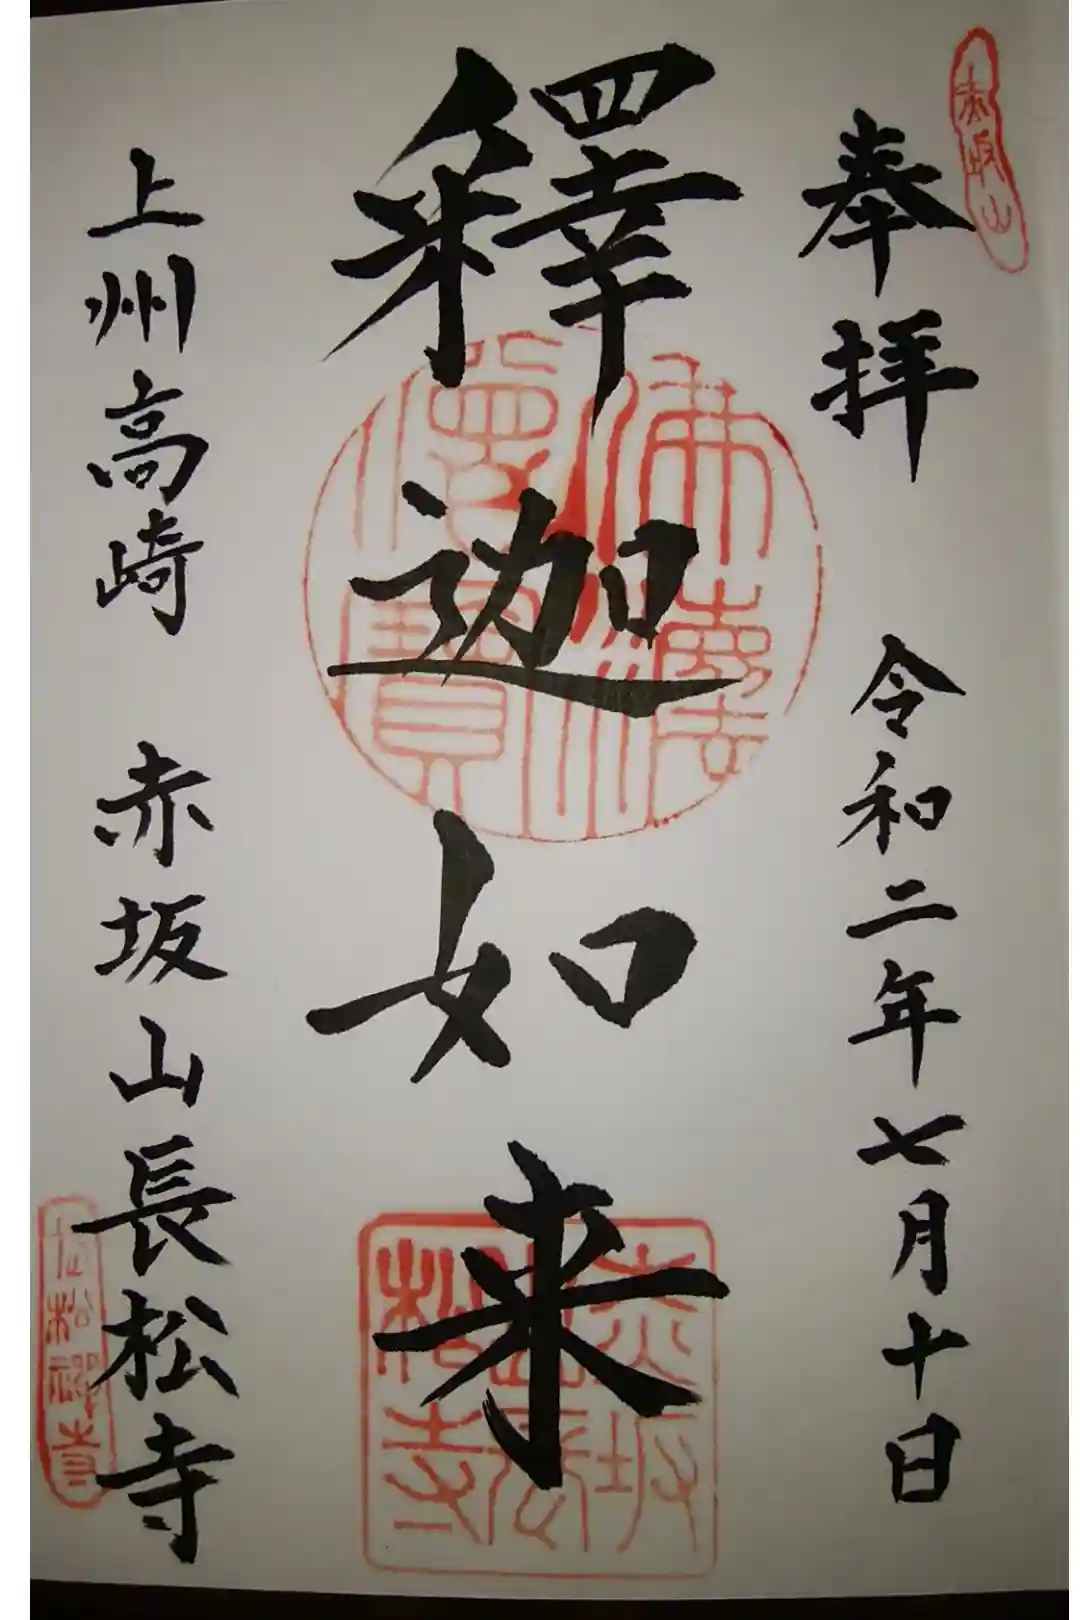 奉拝 令和二年七月十日
釋迦如来
上州高崎 赤坂山長松寺
赤坂山
佛法僧寶
赤坂山長松寺